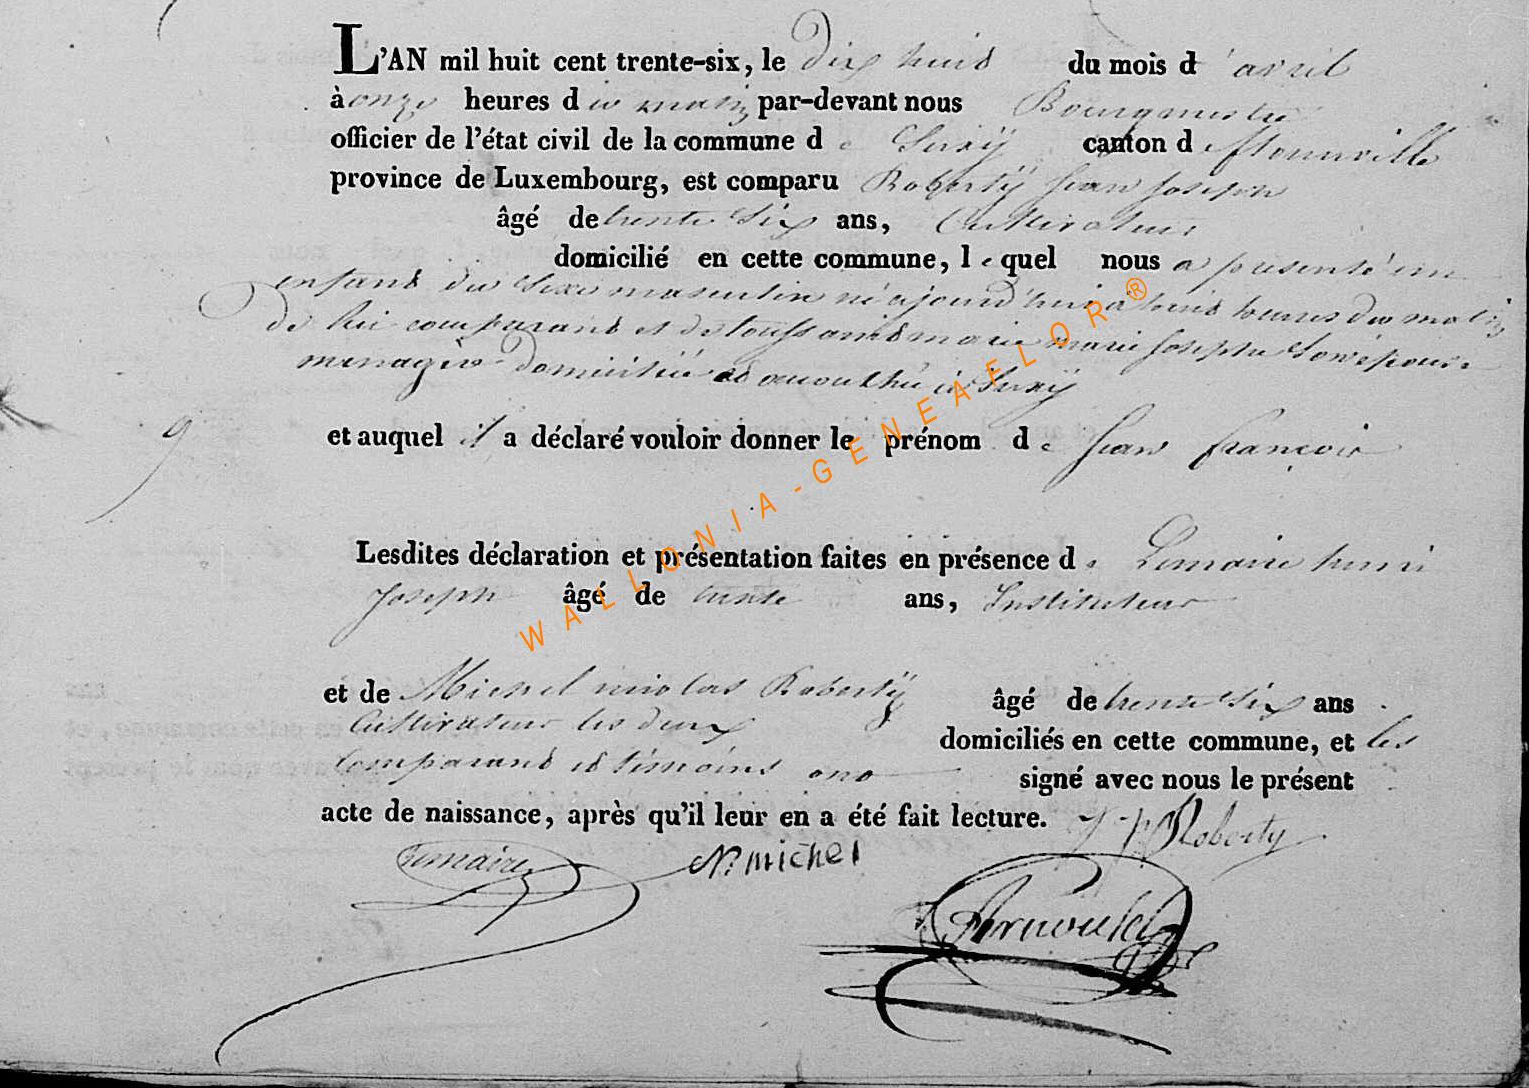 L'AN mil huit cent trente-six, le Dix huid du mois d' avril
à onze heures d u matin par-devant nous Bourgmestre
officier de l'état civil de la commune d e Suxÿ canton d e florenville
province de Luxembourg, est comparu Robertÿ Jean Joseph
âgé de trente Six ans, Cultivateur
domicilié en cette commune, l e quel nous a présenté un
enfand du Sexe masculin né ajourd'hui a huid heures du matin
de lui comparand et de toussaind marie marie Josephe Son épouse
menagère domiciliée et accouchée à Suxÿ
9
et auquel il a déclaré vouloir donner le prénom d e Jean françois
Lesdites déclaration et présentation faites en présence d e Lemaire henri
Joseph âgé de trente ans, Instituteur
et de Michel nicolas Robertÿ âgé de trente Six ans
Cultivateur les deux domiciliés en cette commune, et les
Comparand et témoins ono signé avec nous le présent
acte de naissance, après qu'il leur en a été fait lecture. J-J Roberty
Lemaire N. michel
Arnould
WALLONIA-GENEAELOR®